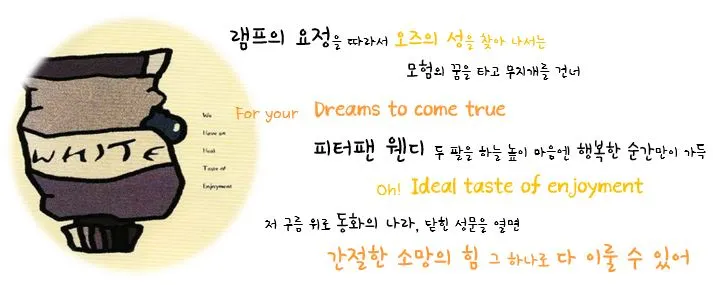 램프의 요정을 따라서 오즈의 성을 찾아 나서는
모험의 꿈을 타고 무지개를 건너
For your Dreams to come true
피터팬 웬디 두 팔을 하늘 높이 마음엔 행복한 순간만이 가득
Oh! Ideal taste of enjoyment
저 구름 위로 동화의 나라, 닫힌 성문을 열면
간절한 소망의 힘 그 하나로 다 이룰 수 있어
WHITE
We
Have an
Ideal
Taste of
Enjoyment